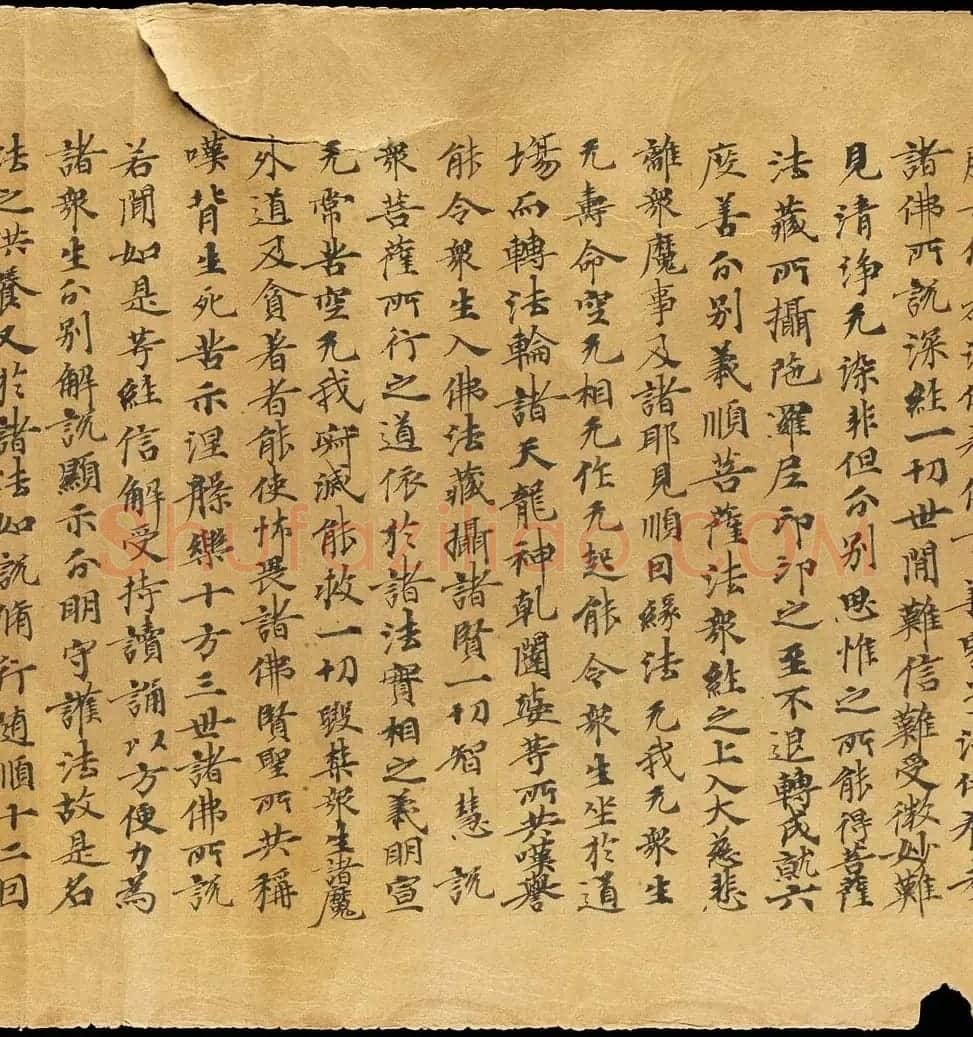 諸佛所說深經一切世間難信難受微妙難
見清淨无染非但分別思惟之所能得菩薩
法藏所攝陁羅尼印印之至不退轉成就六
度善分別義順菩薩法衆經之上入大慈悲
離衆魔事及諸耶見順因緣法无我无衆生
无壽命空无相无作无起能令衆生坐於道
場而轉法輪諸天龍神乹闥婆等所共嘆譽
能令衆生入佛法藏攝諸賢一切智慧說
衆菩薩所行之道依於諸法實相之義明宣
无常苦空无我寂滅能救一切毀禁衆生諸魔
外道及貪著者能使怖畏諸佛賢聖所共稱
嘆背生死苦示涅槃樂十方三世諸佛所說
若聞如是等經信解受持讀誦以方便力為
諸衆生分別解說顯示分明守護法故是名
法之共養又於諸法如說脩行隨順十二因
Shufaziliao.COM